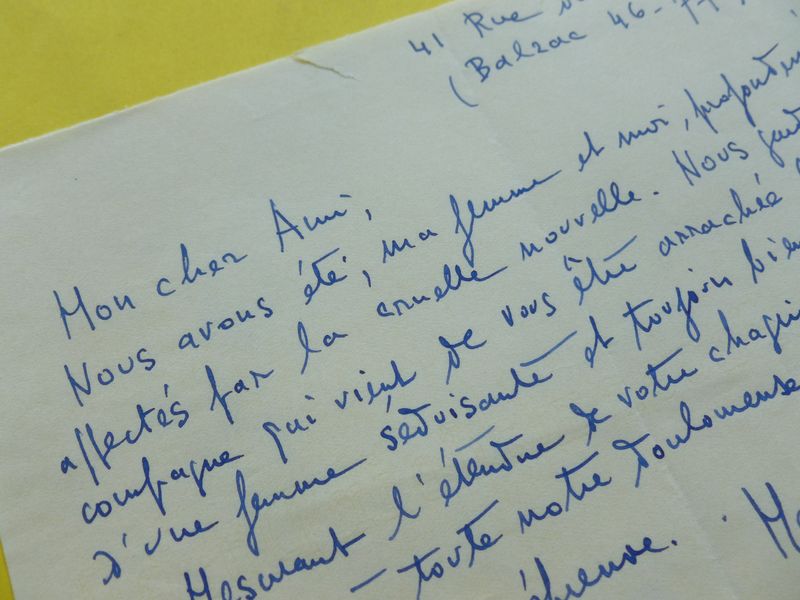 41 Rue
(Balzac 46-77
Mon cher Ami,
Nous avons été, ma femme et moi,
affectés par la cruelle nouvelle. Nous
compagne qui vient de vous être arrachée
d'une femme séduisante et toujours bien
Mesurant l'étendue de votre
— toute notre douloureuse